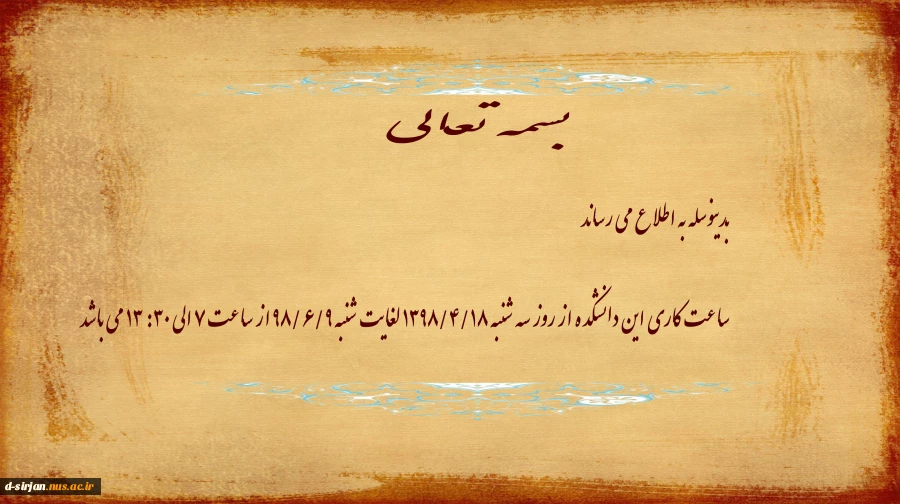 بسمه تعالی
بدینوسیله به اطلاع می رساند
ساعت کاری این دانشکده از روز سه شنبه ۱۳۹۸/۴/۱۸ لغایت شنبه ۹۸/۶/۹ از ساعت ۷ الی ۱۳:۳۰ می باشد
d-sirjan.nus.ac.ir